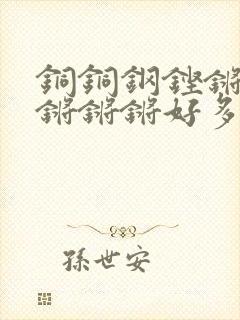 銅銅鋼鏗鏘
鏘鏘鏘好多
孫世安